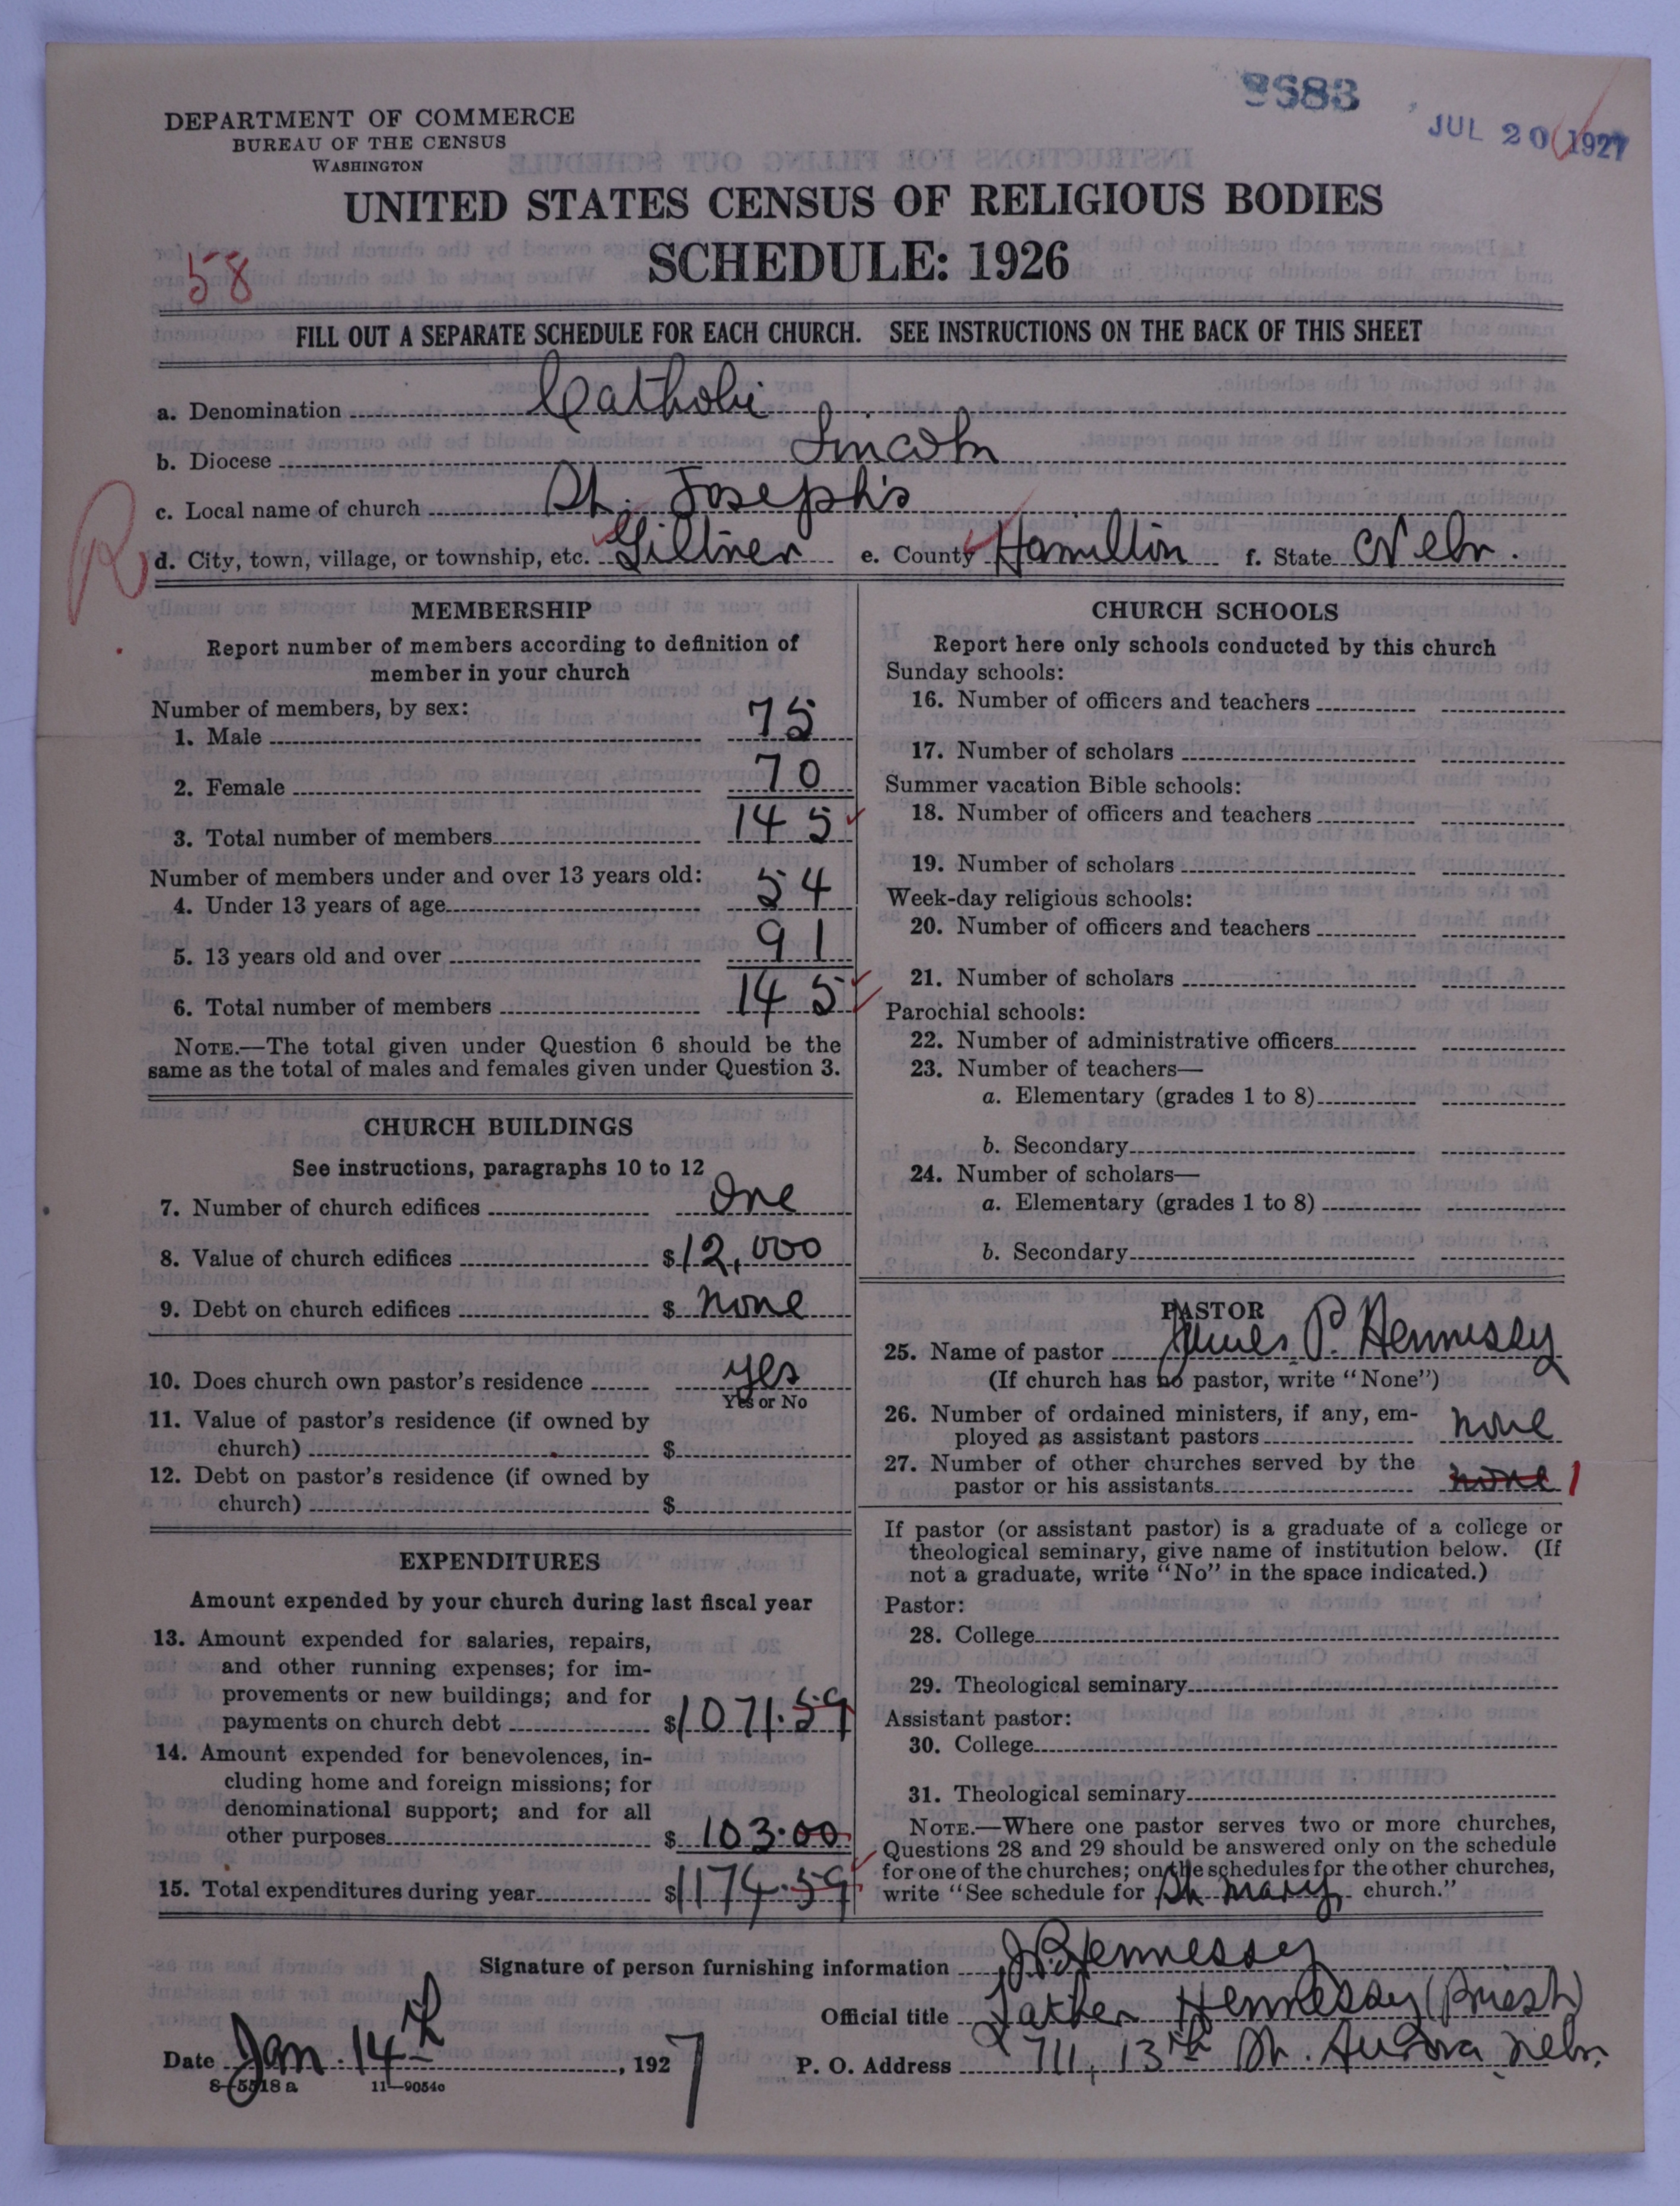 9683
JUL 20 1927
DEPARTMENT OF COMMERCE
BUREAU OF THE CENSUS
WASHINGTON
UNITED STATES CENSUS OF RELIGIOUS BODIES
SCHEDULE: 1926
58
FILL OUT A SEPARATE SCHEDULE FOR EACH CHURCH. SEE INSTRUCTIONS ON THE BACK OF THIS SHEET
a. Denomination Catholic
b. Diocese Lincoln
c. Local name of church St. Joseph's
R
d. City, town, village, or township, etc. Giltner e. County Hamilton f. State Nebr.
MEMBERSHIP
Report number of members according to definition of
member in your church
Number of members, by sex:
1. Male 75
2. Female 70
3. Total number of members 145
Number of members under and over 13 years old:
4. Under 13 years of age 54
5. 13 years old and over 91
6. Total number of members 145
NOTE.—The total given under Question 6 should be the
same as the total of males and females given under Question 3.
CHURCH BUILDINGS
See instructions, paragraphs 10 to 12
7. Number of church edifices One
8. Value of church edifices $12,000
9. Debt on church edifices $ none
10. Does church own pastor's residence yes
Yes or No
11. Value of pastor's residence (if owned by
church) $
12. Debt on pastor's residence (if owned by
church) $
EXPENDITURES
Amount expended by your church during last fiscal year
13. Amount expended for salaries, repairs,
and other running expenses; for im-
provements or new buildings; and for
payments on church debt $1071.59
14. Amount expended for benevolences, in-
cluding home and foreign missions; for
denominational support; and for all
other purposes $ 103.00
15. Total expenditures during year $1174.59
CHURCH SCHOOLS
Report here only schools conducted by this church
Sunday schools:
16. Number of officers and teachers
17. Number of scholars
Summer vacation Bible schools:
18. Number of officers and teachers
19. Number of scholars
Week-day religious schools:
20. Number of officers and teachers
21. Number of scholars
Parochial schools:
22. Number of administrative officers
23. Number of teachers—
a. Elementary (grades 1 to 8)
b. Secondary
24. Number of scholars—
a. Elementary (grades 1 to 8)
b. Secondary
PASTOR
25. Name of pastor James P. Hennessy
(If church has no pastor, write "None")
26. Number of ordained ministers, if any, em-
ployed as assistant pastors none
27. Number of other churches served by the
pastor or his assistants none 1
If pastor (or assistant pastor) is a graduate of a college or
theological seminary, give name of institution below. (If
not a graduate, write "No" in the space indicated.)
Pastor:
28. College
29. Theological seminary
Assistant pastor:
30. College
31. Theological seminary
NOTE.—Where one pastor serves two or more churches,
Questions 28 and 29 should be answered only on the schedule
for one of the churches; on the schedules for the other churches,
write "See schedule for St Mary church."
Signature of person furnishing information J.P. Hennessy
Official title Father Hennessy (Priest)
Date Jan. 14th, 1927 P. O. Address 711, 13th St. Aurora Nebr.
8-5518 a 11—9054c